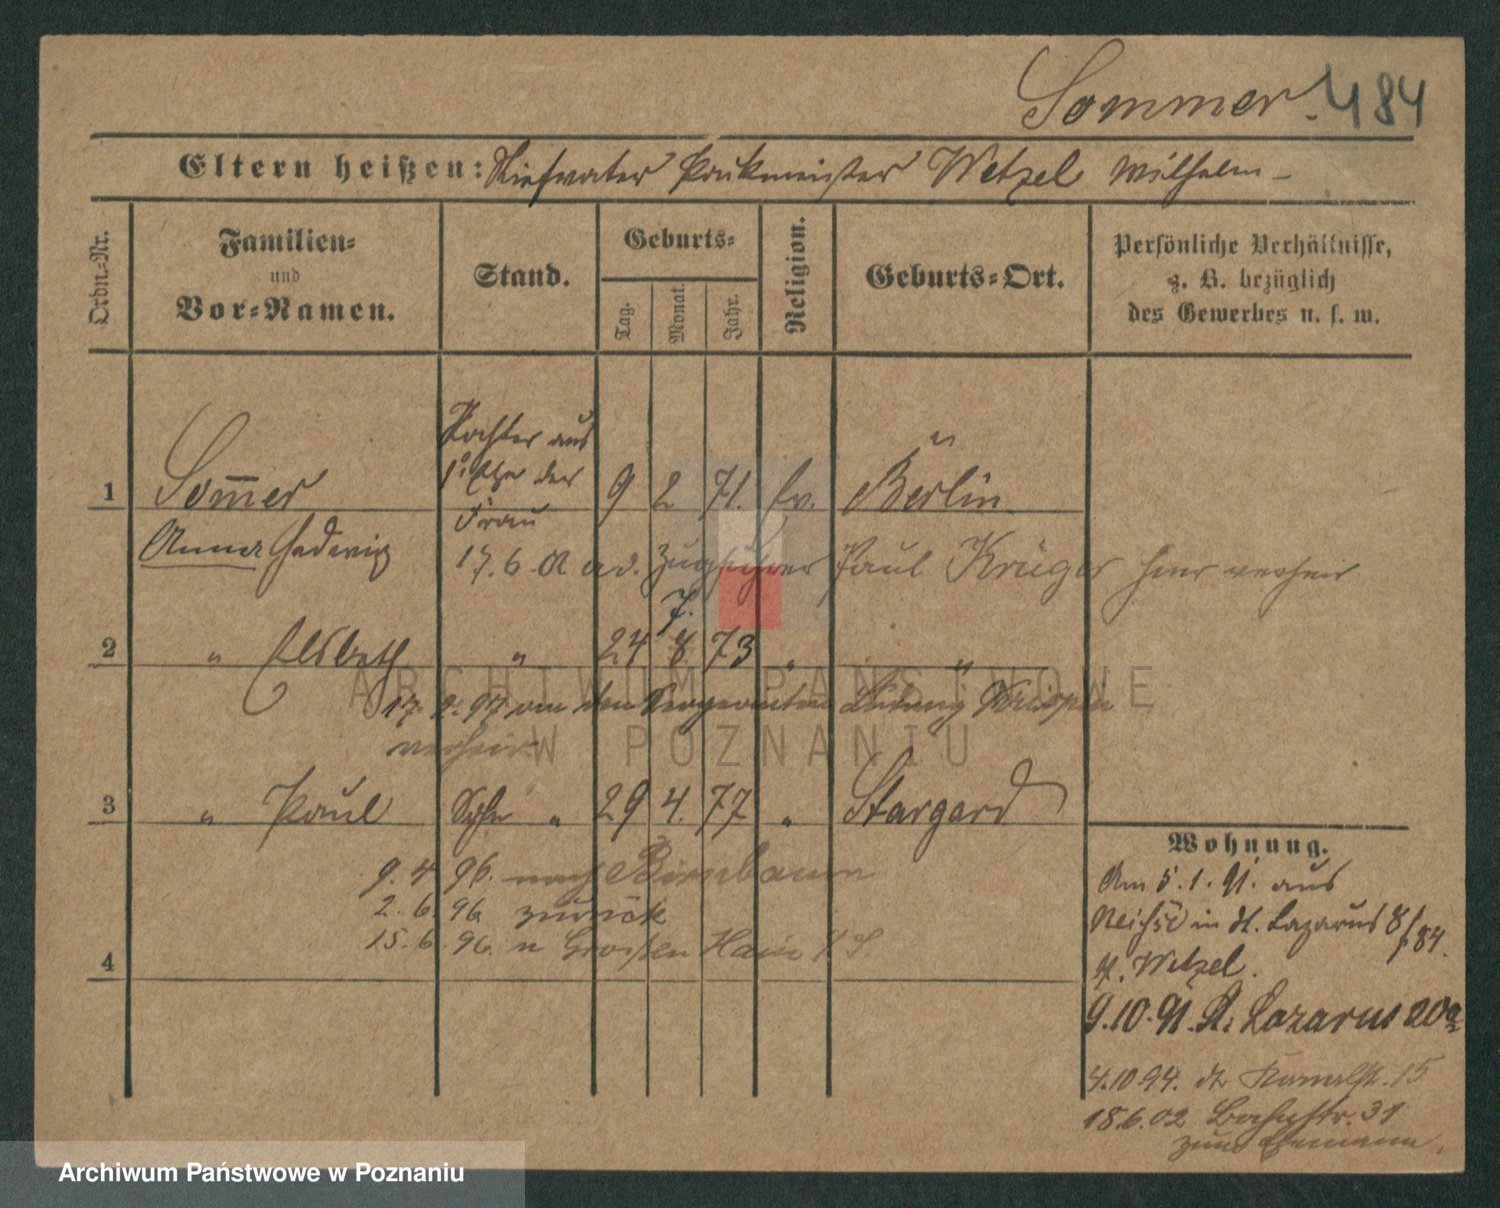 Sommer. 484
Eltern heißen: Stiefvater Packmeister Wetzel Wilhelm
Ordn.-Nr.
Familien-
und
Vor-Namen.
Stand.
Geburts-
Tag.
Monat.
Jahr.
Religion.
Geburts-Ort.
Persönliche Verhältnisse,
z. B. bezüglich
des Gewerbes u. s. w.
Tochter aus
der
Frau
1 Som̅er 9 2 71. ev. Berlin
Anna Hedwig
17.6. Zugführer Paul Krüger hier verheir
7.
2 " Elsbeth " 24 8. 73 " "
17. 9. 97 an den Sergeanten
verheir
3 " Paul Sohn " 29 4. 77 " Stargard
9. 4 96. nach Birnbaum
2. 6. 96 zurück
15. 6. 96. n Großen Hain
4
Wohnung.
Am 5. 1. 91. aus
in St. Lazarus 8/84.
Wetzel.
9.10.91. St. Lazarus 20a
4.10.94. Kanalstr. 15
18.6.02 Bahnstr. 31
zum Ehemann.
ARCHIWUM PAŃSTWOWE
W POZNANIU
Archiwum Państwowe w Poznaniu